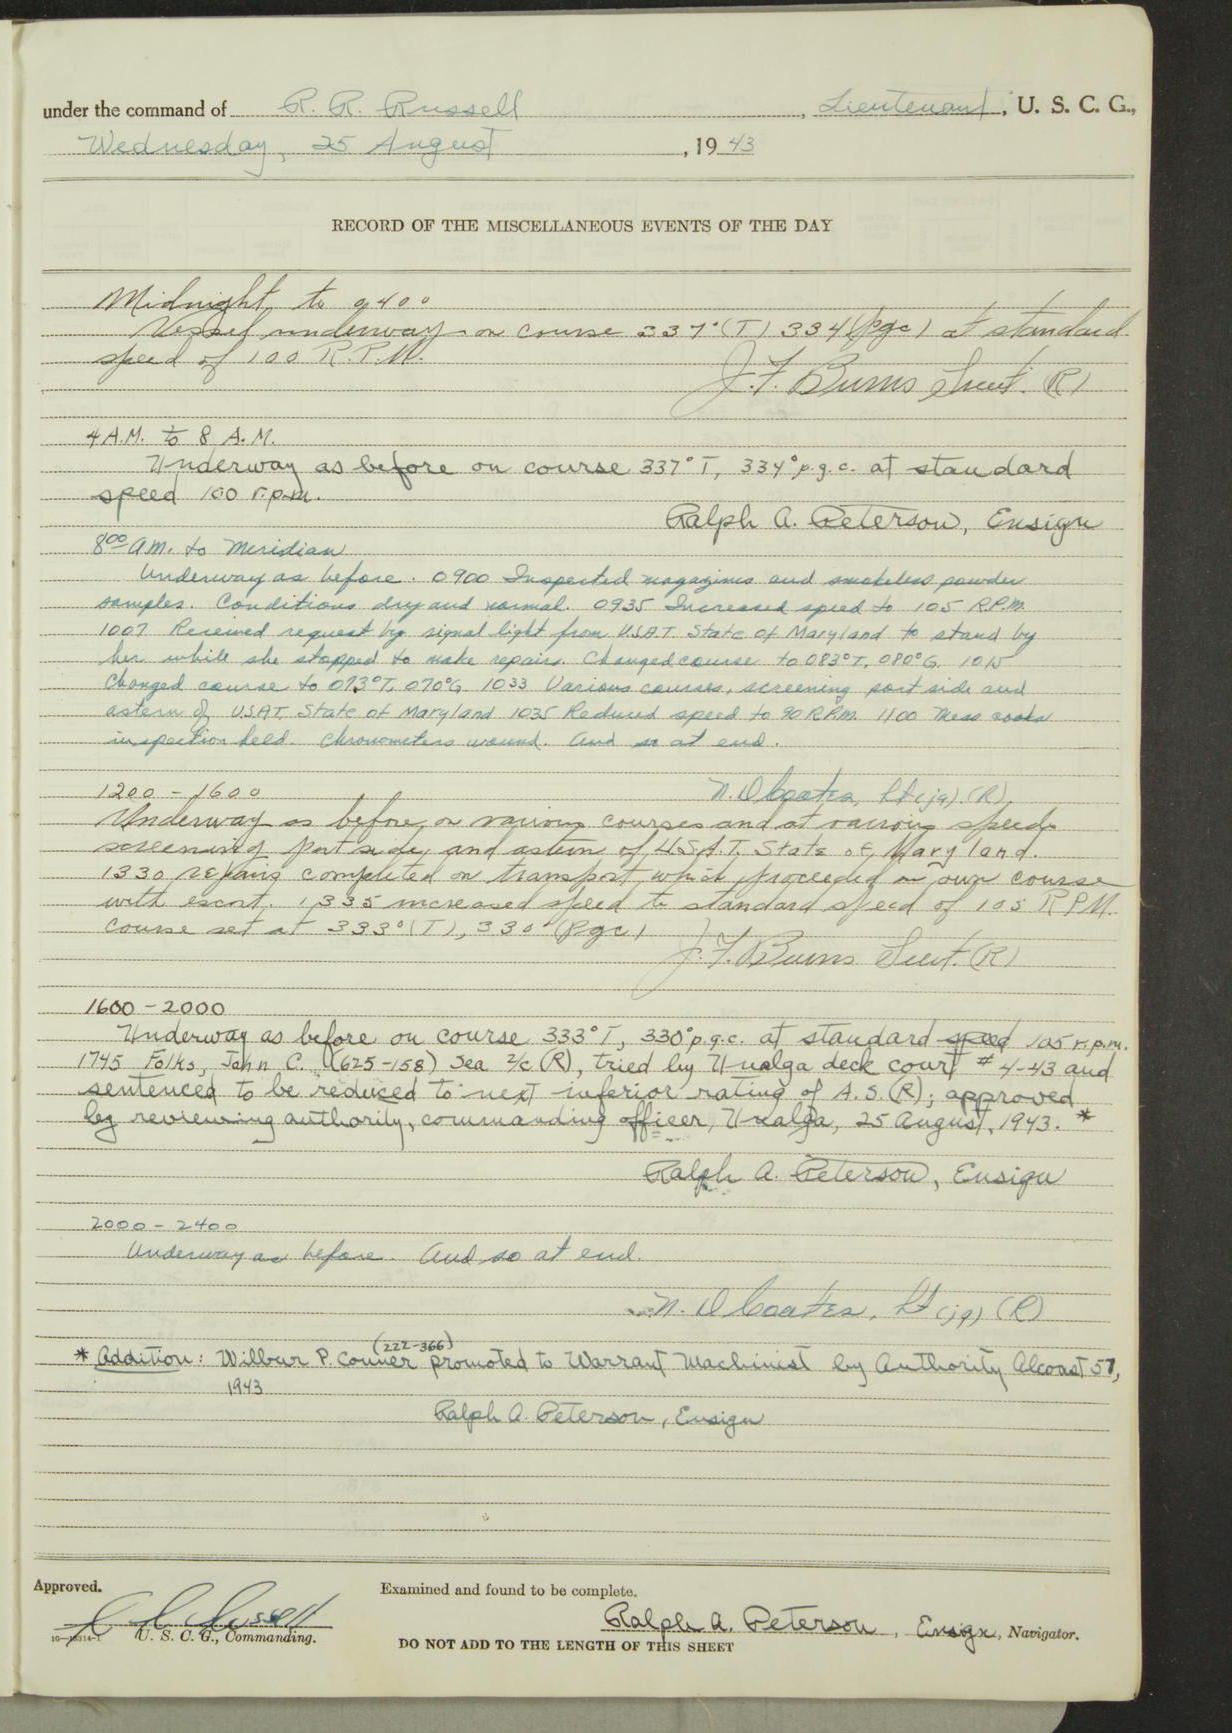 under the command of R. R. Russell, Lieutenant, U. S. C. G.,
Wednesday, 25 August, 19 43
RECORD OF THE MISCELLANEOUS EVENTS OF THE DAY
Midnight to 0400
Vessel underway on course 337°(T) 334(pgc) at standard
speed of 100 R.P.M.
J.F. Burns Lieut. (R)
4 A.M. to 8 A.M.
Underway as before on course 337°T, 334°p.g.c. at standard
speed 100 r.p.m.
Ralph A. Peterson, Ensign
8:00 AM. to Meridian
Underway as before. 0900 Inspected magazines and smokeless powder
samples. Conditions dry and normal. 0935 Increased speed to 105 R.P.M.
1007 Received request by signal light from U.S.A.T. State of Maryland to stand by
her while she stopped to make repairs. Changed course to 083°T, 080°G. 1015
Changed course to 073°T, 070°G 1033 Various courses, screening port side and
astern of U.S.A.T. State of Maryland 1035 Reduced speed to 90 R.P.M. 1100 Mess cooks
inspection held. Chronometers wound. And so at end.
N. D Coates, Lt (jg) (R)
1200 - 1600
Underway as before on various courses and at various speeds
screening port side and astern of U.S.A.T. State of Maryland.
1330 repairs completed on transport, which proceeded on own course
with escort. 1335 increased speed to standard speed of 105 R.P.M.
Course set at 333°(T), 330°(pgc)
J.F. Burns Lieut. (R)
1600 - 2000
Underway as before on course 333°T, 330°p.g.c. at standard speed 105 r.p.m.
1745 Folks, John C. (625-158) Sea 2/c (R), tried by Unalga deck court # 4-43 and
sentenced to be reduced to next inferior rating of A.S. (R); approved
by reviewing authority, commanding officer, Unalga, 25 August, 1943. *
Ralph A. Peterson, Ensign
2000 - 2400
Underway as before. And so at end.
N. D Coates, Lt (jg) (R)
(222-366)
* Addition: Wilbur P. Conner promoted to Warrant Machinist by Authority Alcoast 57,
1943
Ralph A. Peterson, Ensign
Approved. Examined and found to be complete.
R R Russell Ralph A. Peterson, Ensign, Navigator.
U. S. C. G., Commanding.
DO NOT ADD TO THE LENGTH OF THIS SHEET